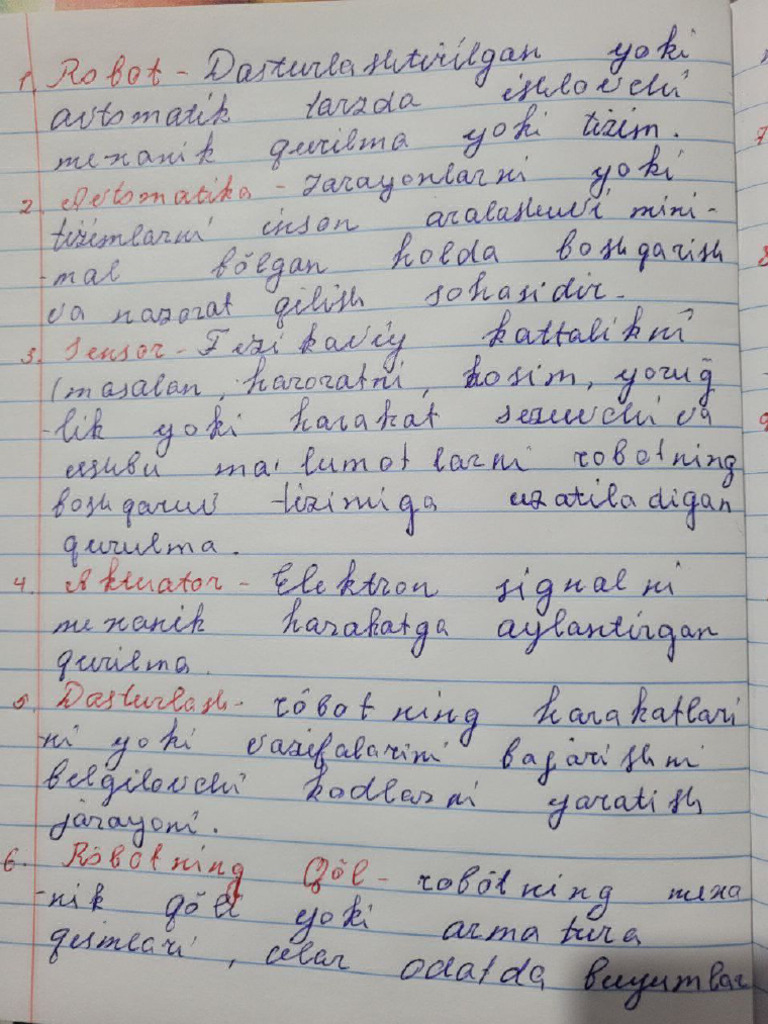 1. Robot - Dasturlashtirilgan yoki
avtomatik tarzda ishlovchi
mexanik qurilma yoki tizim.
2. Avtomatika - Jarayonlarni yoki
tizimlarni inson aralashuvi mini-
-mal bõlgan holda boshqarish
va nazorat qilish sohasidir.
3. Sensor - Fizikaviy kattalikni
(masalan, haroratni, bosim, yorug̃
-lik yoki harakat sezuvchi va
ushbu ma'lumotlarni robotning
boshqaruv tizimiga uzatiladigan
qurulma.
4. Aktuator - Elektron signalni
mexanik harakatga aylantirgan
qurilma.
5. Dasturlash - robotning harakatlari
ni yoki vazifalarini bajarishni
belgilovchi kodlarni yaratish
jarayoni.
6. Robotning Qõl - robotning mexa
-nik qõli yoki armatura
qismlari, ular odatda buyumlar
7
8
9